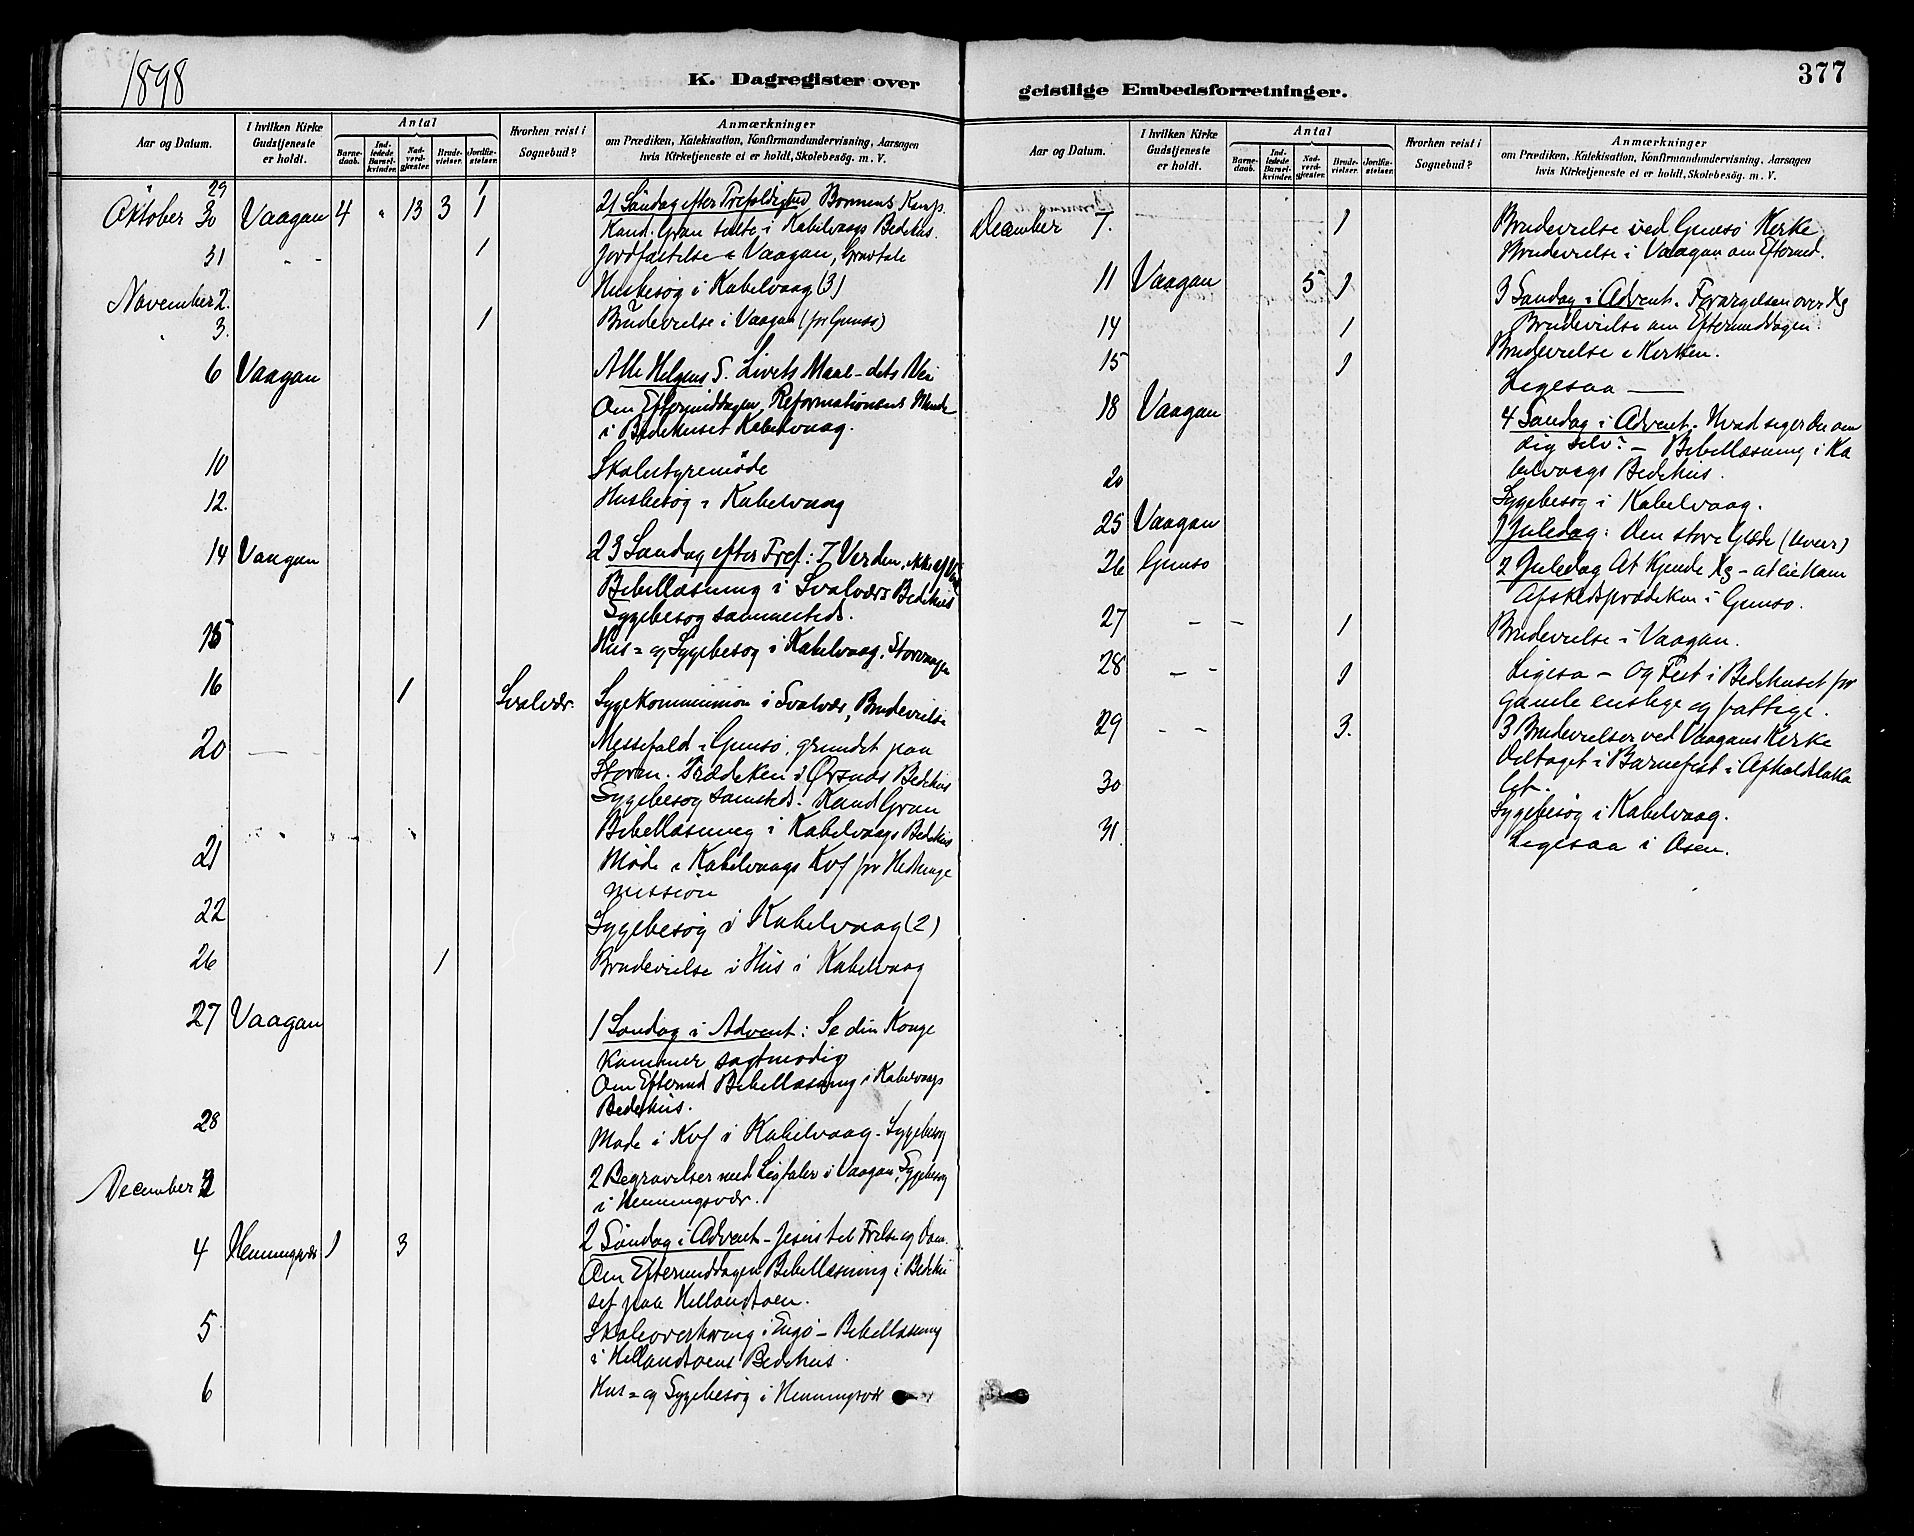 1898
K. Dagregister over
Aar og Datum.
I hvilken Kirke Gudstjeneste er holdt.
Antal
Barne-daab.
Ind-ledede Barsel-kvinder.
Nad-verd-gjæster.
Brude-vielser.
Jordfæ-stelser.
Hvorhen reist i Sognebud?
Anmærkninger
om Prædiken, Katekisation, Konfirmandundervisning, Aarsagen
hvis Kirketjeneste ei er holdt, Skolebesøg. m. V.
29 1
Oktober 30 Vaagan 4 " 13 3 1 21 Søndag efter Trefoldighed Bønnens Kamp.
Kand. Gran talte i Kabelvaags Bedehus.
31 - - 1 Jordfæstelse i Vaagan, Gravtale
November 2. Husbesøg i Kabelvaag (3)
" 3. 1 Brudevielse i Vaagan (for Gimsø)
6 Vaagan Alle Helgens S. Livets Maal - dets Vei
Om Eftermiddagen, Reformationens Minde
i Bedehuset Kabelvaag.
10 Skolestyremøde
12. Husbesøg i Kabelvaag
14 Vaagan 23 Søndag efter Tref: I Verden, ikke af
Bibellæsning i Svalvær Bedehus
Sygebesøg sammesteds.
15 Hus- og Sygebesøg i Kabelvaag, Storvaagen
16 1 Svalvær Sygekommunion i Svalvær, Brudevielse
20 Messefald i Gimsø, grundet paa
Storm. Prædiken i Ørsnes Bedehus
Sygebesøg samsteds. Kand Gran
Bibellæsning i Kabelvaags Bedehus
21 Møde i Kabelvaags Kvf for Hedninge
mission
22 Sygebesøg i Kabelvaag (2)
26 1 Brudevielse i Hus i Kabelvaag
27 Vaagan 1 Søndag i Advent: Se din Konge
kommer sagtmodig
Om Eftermid Bibellæsning i Kabelvaags
Bedehus.
28 Møde i Kvf i Kabelvaag - Sygebesøg
December 2 2 Begravelser med Ligtaler i Vaagan, Sygebesøg
i Henningsvær.
4 Henningsvær 1 3 2 Søndag i Advent - Jesus til Frelse og Dom.
Om Eftermiddagen Bibellæsning i Bedehu
set paa Hellandsøen.
5 Skoleoverhøring i Engø - Bibellæsning
i Hellandsøens Bedehus.
6 Hus- og Sygebesøg i Henningsvær
377
geistlige Embedsforretninger.
Aar og Datum.
I hvilken Kirke Gudstjeneste er holdt.
Antal
Barne-daab.
Ind-ledede Barsel-kvinder.
Nad-verd-gjæster.
Brude-vielser.
Jordfæ-stelser.
Hvorhen reist i Sognebud?
Anmærkninger
om Prædiken, Katekisation, Konfirmandundervisning, Aarsagen
hvis Kirketjeneste ei er holdt, Skolebesøg. m. V.
December 7. 1 Brudevielse ved Gimsø Kirke
Brudevielse i Vaagan om Eftermd.
11 Vaagan 5 1 3 Søndag i Advent. Forargelsen over Kg
14 1 Brudevielse om Eftermiddagen
15 1 Brudevielse i Kirken.
Ligesaa
18 Vaagan 4 Søndag i Advent. Hvad siger du om
dig selv? - Bibellæsning i Ka
belvaags Bedehus.
20 Sygebesøg i Kabelvaag.
25 Vaagan 1 Juledag: Den store Glæde (uveir)
26 Gimsø 2 Juledag At kjende Kg - at lie ham
Afskedsprædiken i Gimsø.
27 - - 1 Brudevielse i Vaagan.
28 - - 1 Ligesa - Og Fest i Bedehuset for
gamle enslige og fattige.
29 - - 3. 3 Brudevielser ved Vaagans Kirke
Deltaget i Barnefest i Afholdsloka
let.
30 Sygebesøg i Kabelvaag.
31 Ligesaa i Osen.